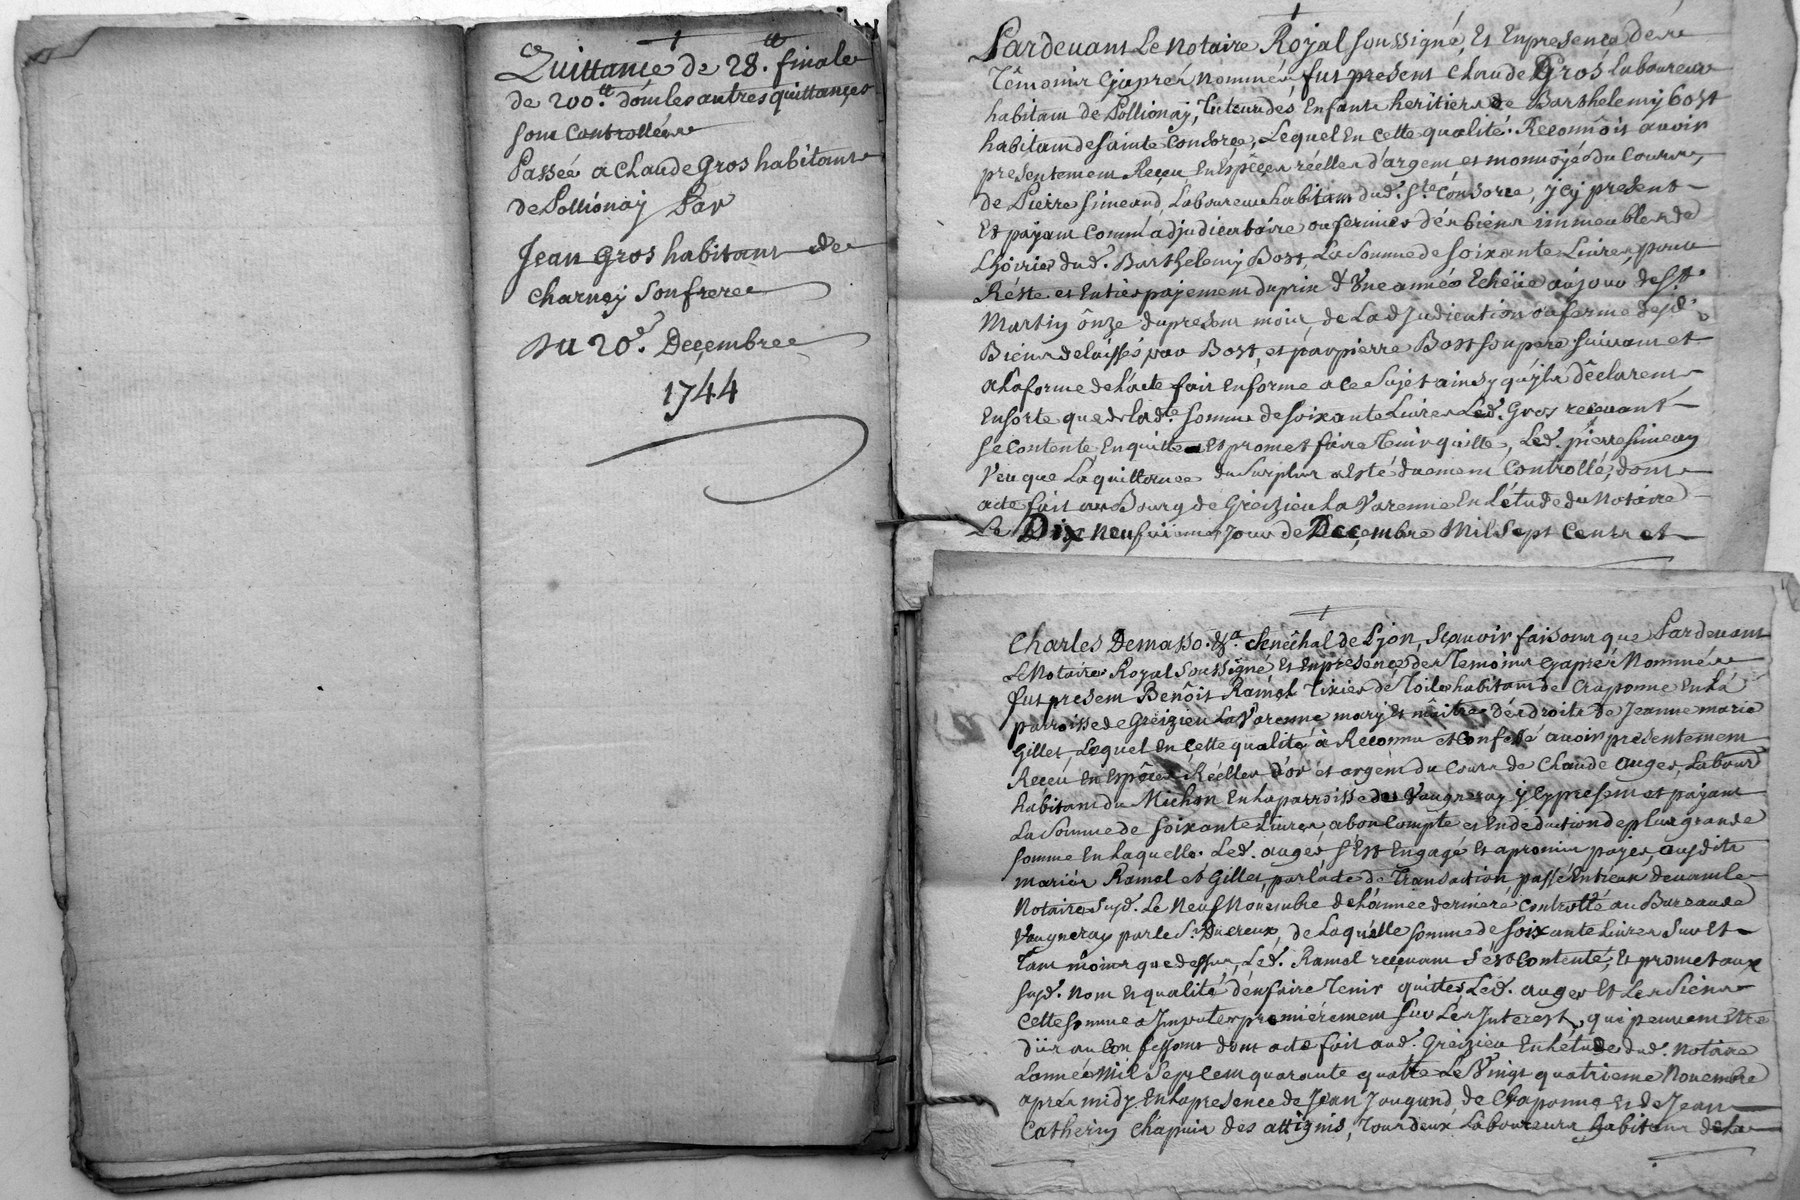 Quittance de 28.tt finale
de 200.tt dont les autres quittances
sont Controllées
Passée a Claude Gros habitant
de Pollionaÿ Par
Jean Gros habitant de
Charnaÿ Son frere
Du 20.e Decembre
1744
Pardevant Le Notaire Royal soussigné, Et En presence des
Témoins cy aprés Nommés fut present Claude Gros Laboureur
habitant de Pollionaÿ, Tuteur des Enfants heritiers de Barthelemy Bost
habitant de Sainte Consorce, Lequel En cette qualité. Reconnôit avoir
presentement Reçeu En Espêces réelles d'argent et monnoyé du Cours,
de Pierre Simeand, Laboureur habitant dud. S.te Consorce, jcy present
Et payant comm'adjudicataire ou fermier dés biens immeubles de
L'hoirie dud. Barthelemy Bost, La Somme de soixante Livres, pour
Réste et Entier payement du prix d'Une année Echeüe au jour de St.
Martin ônze du present mois, de L'adjudication ou ferme desd.
Biens delaissés par Bost, et par pierre Bost son pere suivant et
a la forme de l'acte fait En forme a ce Sujet ainsy qu'jls dêclarent
En sorte que de lad.te somme de soixante Livres Led. Gros recevant
se Contente, En quitte Et promet faire Tenir quitte, Led. pierre Simean
Veu que La quittance du Surplus a esté duement Controllé, dont
acte fait au Bourg de Greizieu La Varenne En L'étude du Notaire
Le Dix neufvieme Jour de Decembre Mil Sept Cents et
Charles Demasso. &a. Senêchal de Lyon, Sçavoir faisons que Pardevant
Le Notaire Royal Soussigné Et En presence des Temoins cy aprés Nommés
fut present Benôit Ramel Tixier de Toile habitant de Craponne En La
parroisse de Greizieu La Varenne mary Et maitre des droits de Jeanne marie
Gillet, Lequel En cette qualité à Reconnu et Confessé avoir presentement
Reçeu En Espêces Réelles d'or et argent du Cours de Claude auger, Labour
habitant du Michon En La parroisse de Vaugneray jcy present et payant
La Somme de soixante Livres, a bon Compte et En deduction de plus grande
somme En Laquelle. Led. auger s'Est Engagé Et a promis payer, ausdits
mariés Ramel et Gillet, par l'acte de Transaction passé Entr'eux devant le
Notaire susd. Le Neuf Novembre de l'année derniere Controllé au Bureau de
Vaugneray par le S.r Ducreux, de Laquelle somme de soixante Livres Sur Et
Tant môins que dessus, Led. Ramel reçevant s'ést Contenté, Et promet aux
susd. nom Et qualité d'en faire Tenir quitte, Led. auger Et Les Siens
Cette somme a Imputer premiérement sur Les Interest, qui peuvent Etre
dûs au Confessant dont acte fait aud. Greizieu En L'etude dud. Notaire
L'année Mil Sept Cent quarante quatre Le Vingt quatrieme Novembre
aprés midy En La presence de Jean Jougand, de Craponne Et de Jean
Catherin Chapuis des attignis, Tous deux Laboureurs habitans de la